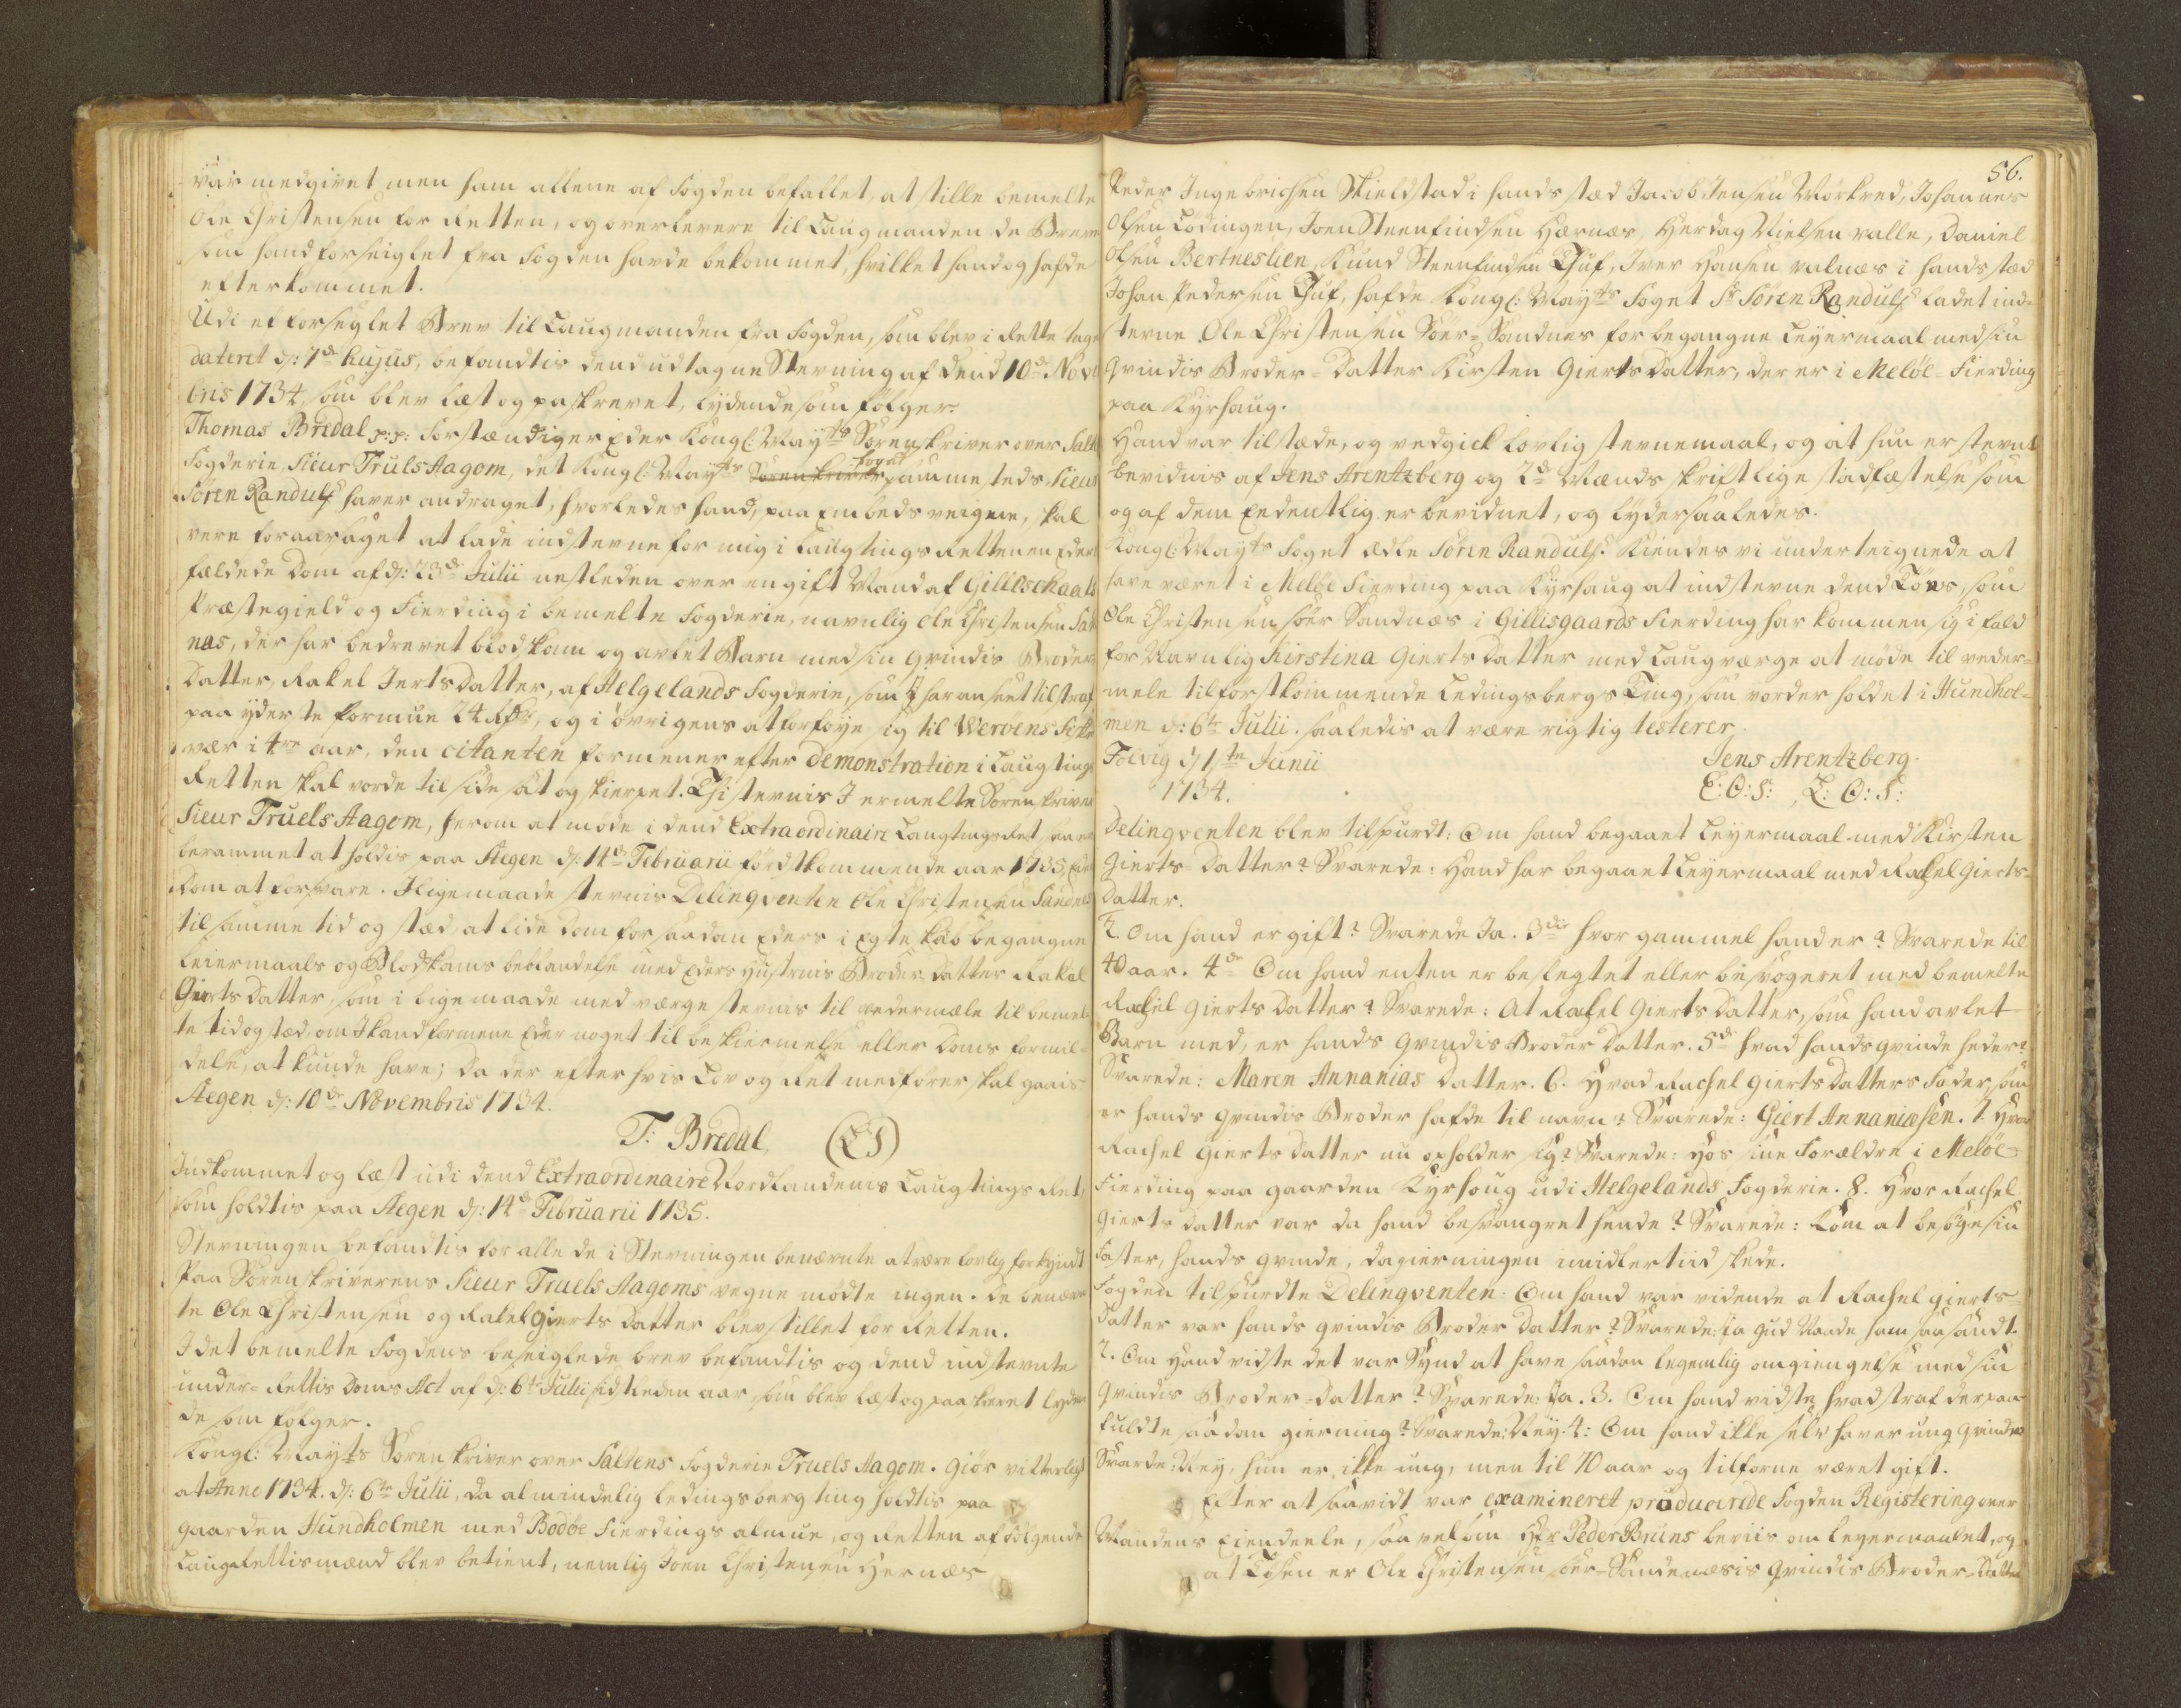 var medgivet men ham allene af Fogden befallet, at stille bemelte
Ole Christensen for Retten, og overlevere til Laugmanden de Breve
som hand forseiglet fra Fogden havde bekommet, hvilket hand og hafde
efterkommet.
Udi et forseglet Brev til Laugmanden fra Fogden, som blev i Rette lagt
dateret d: 7de hujus, befandtis dend udtagne Stevning af Dend 10de Nov
bris 1734, som blev læst og paskrevet, lydende som følger.
Thomas Bredal p:p: forstændiger Eder Kongl: Mayts Sorenskriver over Salt
Fogderie, Sieur Truls Aagom, det Kongl: Mayts Foged samme steds Sieur
Søren Randulf haver andraget, hvorledes hand, paa Embeds veigne, skal
vere foraarsaget at lade indstevne for mig i Laugtings Retten en Eders
fældede Dom af d: 23de Julii nestleden over en gift Mand af Gillischaals
Præstegield og Fierding i bemelte Fogderie, navnlig Ole Christensen San
næs, der har bedrevet blodskam og avlet Barn med sin Qvindis Broder
Datter, Rakel Iertsdatter, af Helgelands Fogderie, som I har anseet til straf
paa yderste formue 24 Rdr, og i øvrigens at forføye sig til Werøens Fiske
vær i 4re aar, den citanten formener efter Demonstration i Laugtings
Retten skal vorde til side sat og skierpet. Thi stevnis I ermelte Sorenskriver
Sieur Truels Aagom, herom at møde i dend Extraordinaire Laugtings Ret, som er
berammet at holdis paa Stegen d: 14de Februarii førstkommende aar 1735, Eders
Dom at forsvare. I ligemaade stevnis Delinqventen Ole Christensen Sandnes
til samme tid og stæd, at lide Dom for saadan Eders i Egteskab begangne
Leiermaals og Blodskams beblandelse med Eders Hustruis Broder Datter Rakel
Giertsdatter, som i lige maade med værge stevnis til vedermæle til bemel
te tid og stæd, om I kand formene Eder noget til beskiermelse eller Doms formil
delse, at kunde have; Da der efter hvis Lov og Ret medfører skal gaais
Stegen d: 10de Novembris 1734.
T: Bredal, (LS)
Indkommet og læst udi dend Extraordinaire Nordlandenes Laugtings Ret,
som holdtis paa Stegen d: 14de Februarii 1735.
Stevningen befandtis for alle de i Stevningen benævnte at være lovlig forkyndt
Paa Sorenskriverens Sieur Truels Aagoms vegne mødte ingen. De benævn
te Ole Christensen og Rakel Gierts Datter blev stillet for Retten.
I det bemelte Fogdens beseiglede brev befandtis og dend indstevnte
under-Rettis Doms Act af d: 6te Julii sidstleden aar som blev læst og paaskrevet lyden
de som følger.
Kongl: Mayts Sorenskriver over Saltens Fogderie Truels Aagom. Giør vitterligt
at Anno 1734. d: 6te Julii, da almindelig ledingsberg ting holdtis paa
gaarden Hundholmen med Bodøe Fierdings almue, og Retten af følgende
Laugrettismænd blev betient, nemlig Joen Christensen Hernæs
56.
Peder Ingebrichsen Skieldstad i hands stæd Jacob Jensen Mørkved, Johannes
Olsen Lødingen, Joen Steenfindsen Hernæs, Herdag Nielsen valle, Daniel
Olsen Bertneslien, Knud Steenfindsen Thuf, Iver Hansen valnæs i hands stæd
Johan Pedersen Thuf, hafde Kongl: Mayts Foget Sr Søren Randulf ladet ind-
stevne Ole Christensen Søer-Sandnes for begangne Leyermaal med sin
Qvindis Broder-Datter Kirsten GiertsDatter, der er i Meløe-Fierding
paa Kyrhaug.
Hand var tilstæde, og vedgick lovlig stevnemaal, og at hun er stevnt
bevidnis af Jens Arentzberg og 2de Mænds skriftlige stadfæstelse som
og af dem Eedentlig er bevidnet, og lyder saaledes.
Kongl: Mayts Foget Ædle Søren Randulf. Kiendes vi underteignede at
have været i Meløe Fierding paa Kyrhaug at indstevne dend Tøes, som
Ole Christensen søer Sandnæs i Gillisgaards Fierding har kommen sig i fald
for Navnlig Kirstina Gierts datter med Laugværge at møde til veder-
mele til førstkommende Ledingsbergs Ting, som vorder holdet i Hundhol-
men d: 6te Julii. saaledis at være rigtig testerer.
Følvig d 1ste Junii Jens Arentzberg.
1734. E: O: S: L: O: S:
Delinqventen blev tilspurdt: Om hand begaaet Leyermaal med Kirsten
Gierts-Datter? Svarede: Hand har begaaet Leyermaal med Rachel Gierts-
Datter.
2. Om hand er gift? Svarede Ja. 3die hvor gammel hand er? Svarede til
40 aar. 4de Om hand enten er beslegtet eller besvogeret med bemelte
Rachel Gierts Datter? Svarede: At Rachel Gierts Datter, som hand avlet
Barn med, er hands Qvindis Broder Datter. 5te hvad hands qvinde heder?
Svarede: Maren Annanias Datter. 6. Hvad Rachel Giertsdatters Fader, som
er hands qvindis Broder hafde til navn? Svarede: Giert Annaniæsen. 7. Hvor
Rachel Giertsdatter nu opholder sig? Svarede: Hos sine Forældre i Meløe-
Fierding paa gaarden Kyrhoug udi Helgelands Fogderie. 8. Hvor Rachel
Giertsdatter var da hand besvangret hende? Svarede: Kom at besøge sin
Faster, hands qvinde, da gierningen imidlertiid skede.
Fogden tilspurdte Delinqventen: Om hand var vidende at Rachel Gierts-
Datter var hands qvindis Broder Datter? Svarede: Ja Gud Naade ham saa sandt.
2. Om Hand vidste det var Synd at have saadan legemlig omgiengelse med sin
Qvindis Broder-Datter? Svarede: Ja. 3. Om hand vidste hvad straf derpaa
fuldte saadan gierning? Svarede: Ney. 4: Om hand ikke selv haver ung qvinde?
Svarede: Ney, hun er ikke ung, men til 70 aar og tilforne været gift.
Efter at saavidt var examineret producerede Fogden Registering over
Mandens Eiendeele, saavelsom Hr Peder Bruns beviis om leyermaalet, og
at Tøsen er Ole Christensen søer-Sandenæsis qvindis Broder-Datter